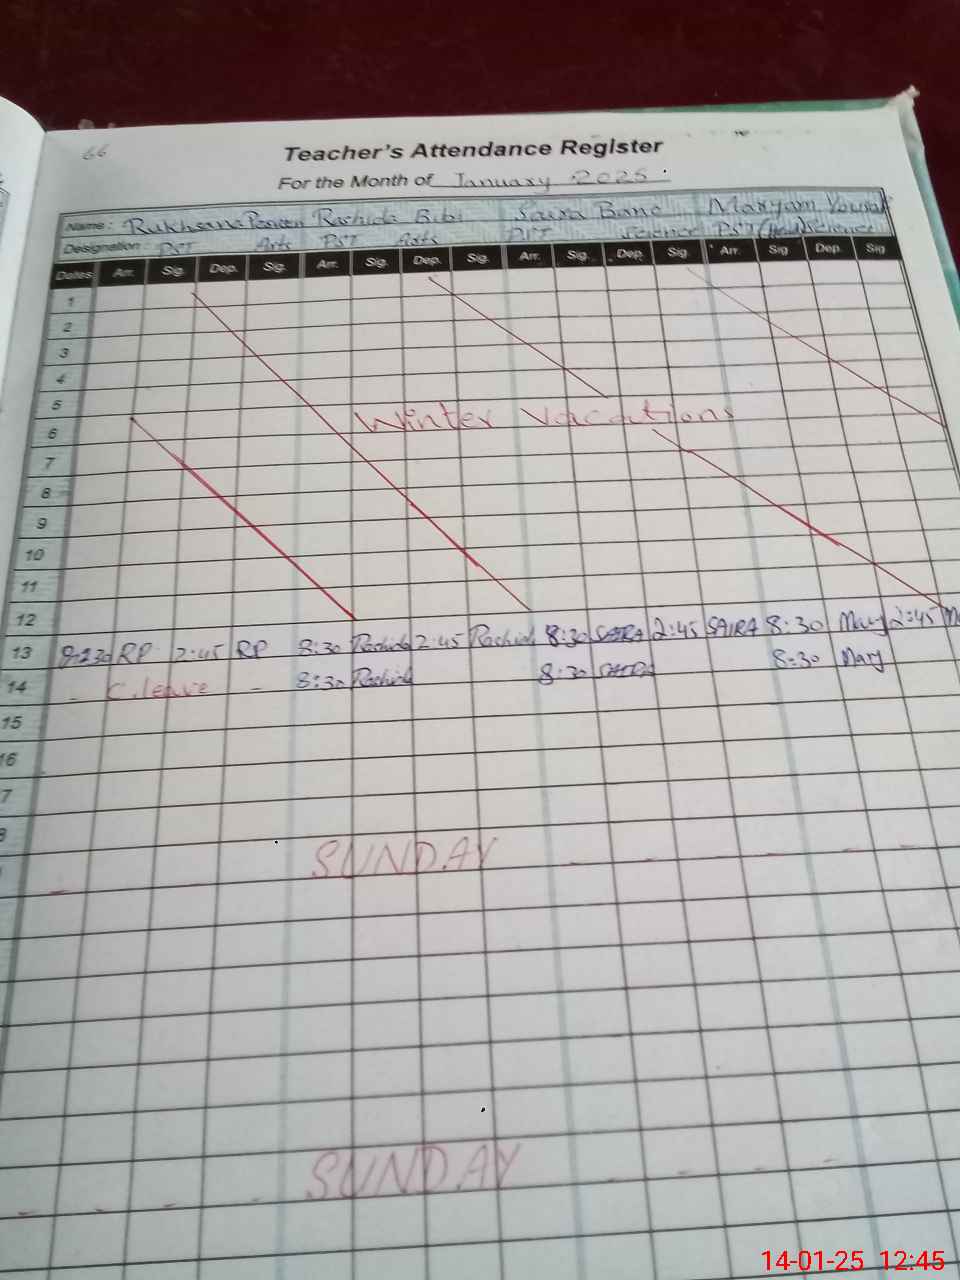 66
Teacher's Attendance Register
For the Month of January 2025
Name: Rukhsana Parveen Rashida Bibi Saira Bano Maryam Yousaf
Designation: PST Arts PST Arts PST Science PST (Hod) Science
Dates Arr. Sig. Dep. Sig. Arr. Sig. Dep. Sig. Arr. Sig. Dep. Sig. Arr. Sig Dep. Sig
1
2
3
4
5
Winter Vacations
6
7
8
9
10
11
12
13 8:30 RP 2:45 RP 8:30 Rashida 2:45 Rashida 8:30 SAIRA 2:45 SAIRA 8:30 Mary 2:45
14 - C.leave - 8:30 Rashida 8:30 SAIRA 8:30 Mary
15
16
7
8
SUNDAY
SUNDAY
14-01-25 12:45